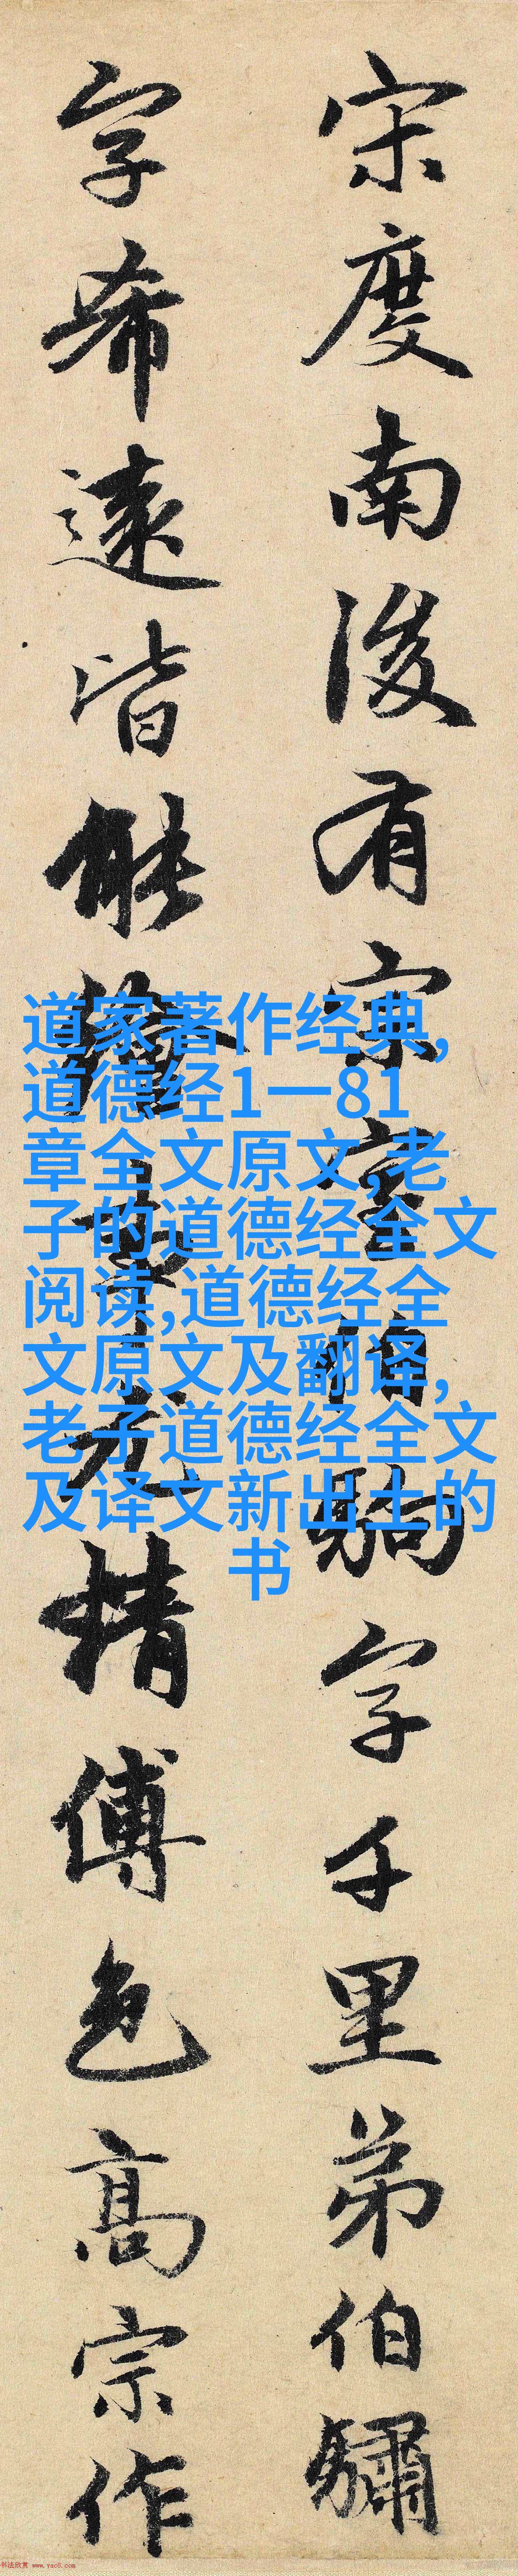 宋度南後有宗室伯駒字千里弟伯驌
字希遠皆能繪事尤精傅色高宗作
道家著作经典,
道德经1一81
章全文原文,老
子的道德经全文
阅读,道德经全
文原文及翻译,
老子道德经全文
及译文新出土的
书
书法欣赏 www.yac8.com